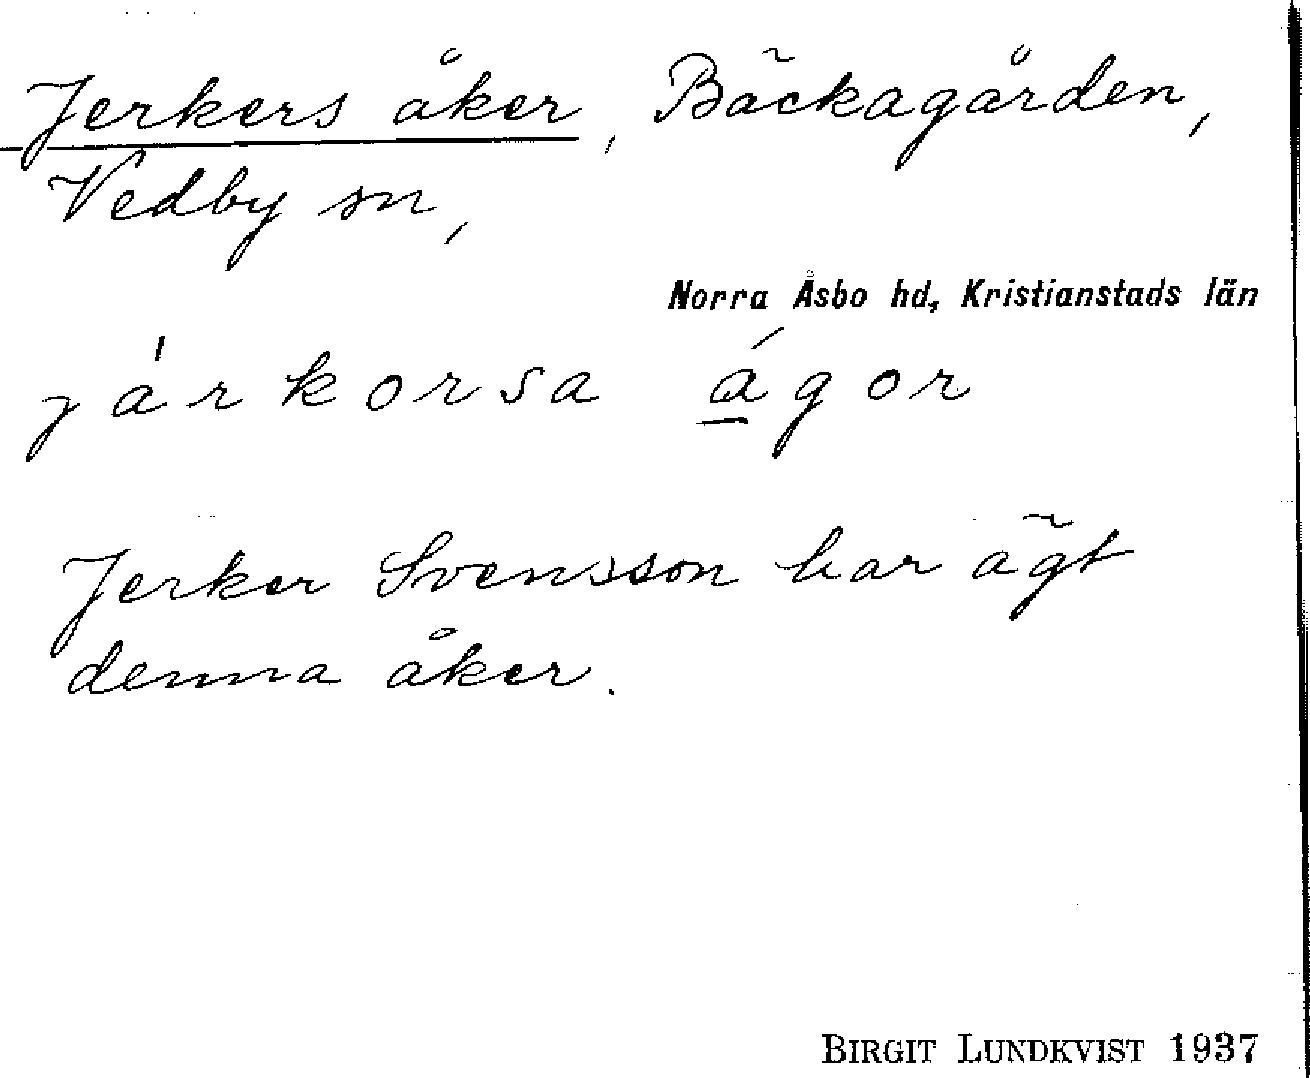 Jerkers åker, Bäckagården,
Vedby sn,
Norra Åsbo hd, Kristianstads län
járkorsa ágor
Jerker Svensson har ägt
denna åker.
BIRGIT LUNDKVIST 1937